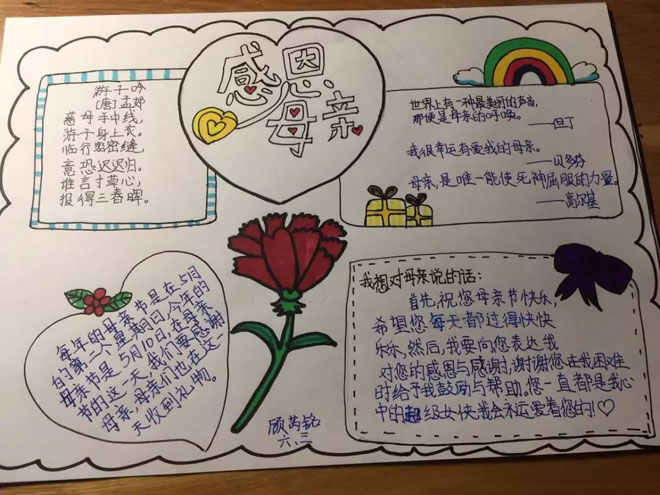 感恩
母亲
游子吟
[唐]孟郊
慈母手中线,
游子身上衣。
临行密密缝,
意恐迟迟归。
谁言寸草心,
报得三春晖。
世界上有一种最美丽的声音,
那便是母亲的呼唤。
——但丁
我很幸运有爱我的母亲。
——贝多芬
母亲,是唯一能使死神屈服的力量。
——高尔基
每年的母亲节是在5月
的第二个星期日,今年的
母亲节是5月10日,在母亲
节的这一天,我们要感谢
母亲,母亲们也在这一
天收到礼物。
我想对母亲说的话:
首先,祝您母亲节快乐,
希望您每天都过得快快
乐乐,然后,我要向您表达我
对您的感恩与感谢,谢谢您在我困难
时给予我鼓励与帮助。您一直都是我心
中的超级女侠,我会永远爱着您的!!♡
顾芮铭
六.三